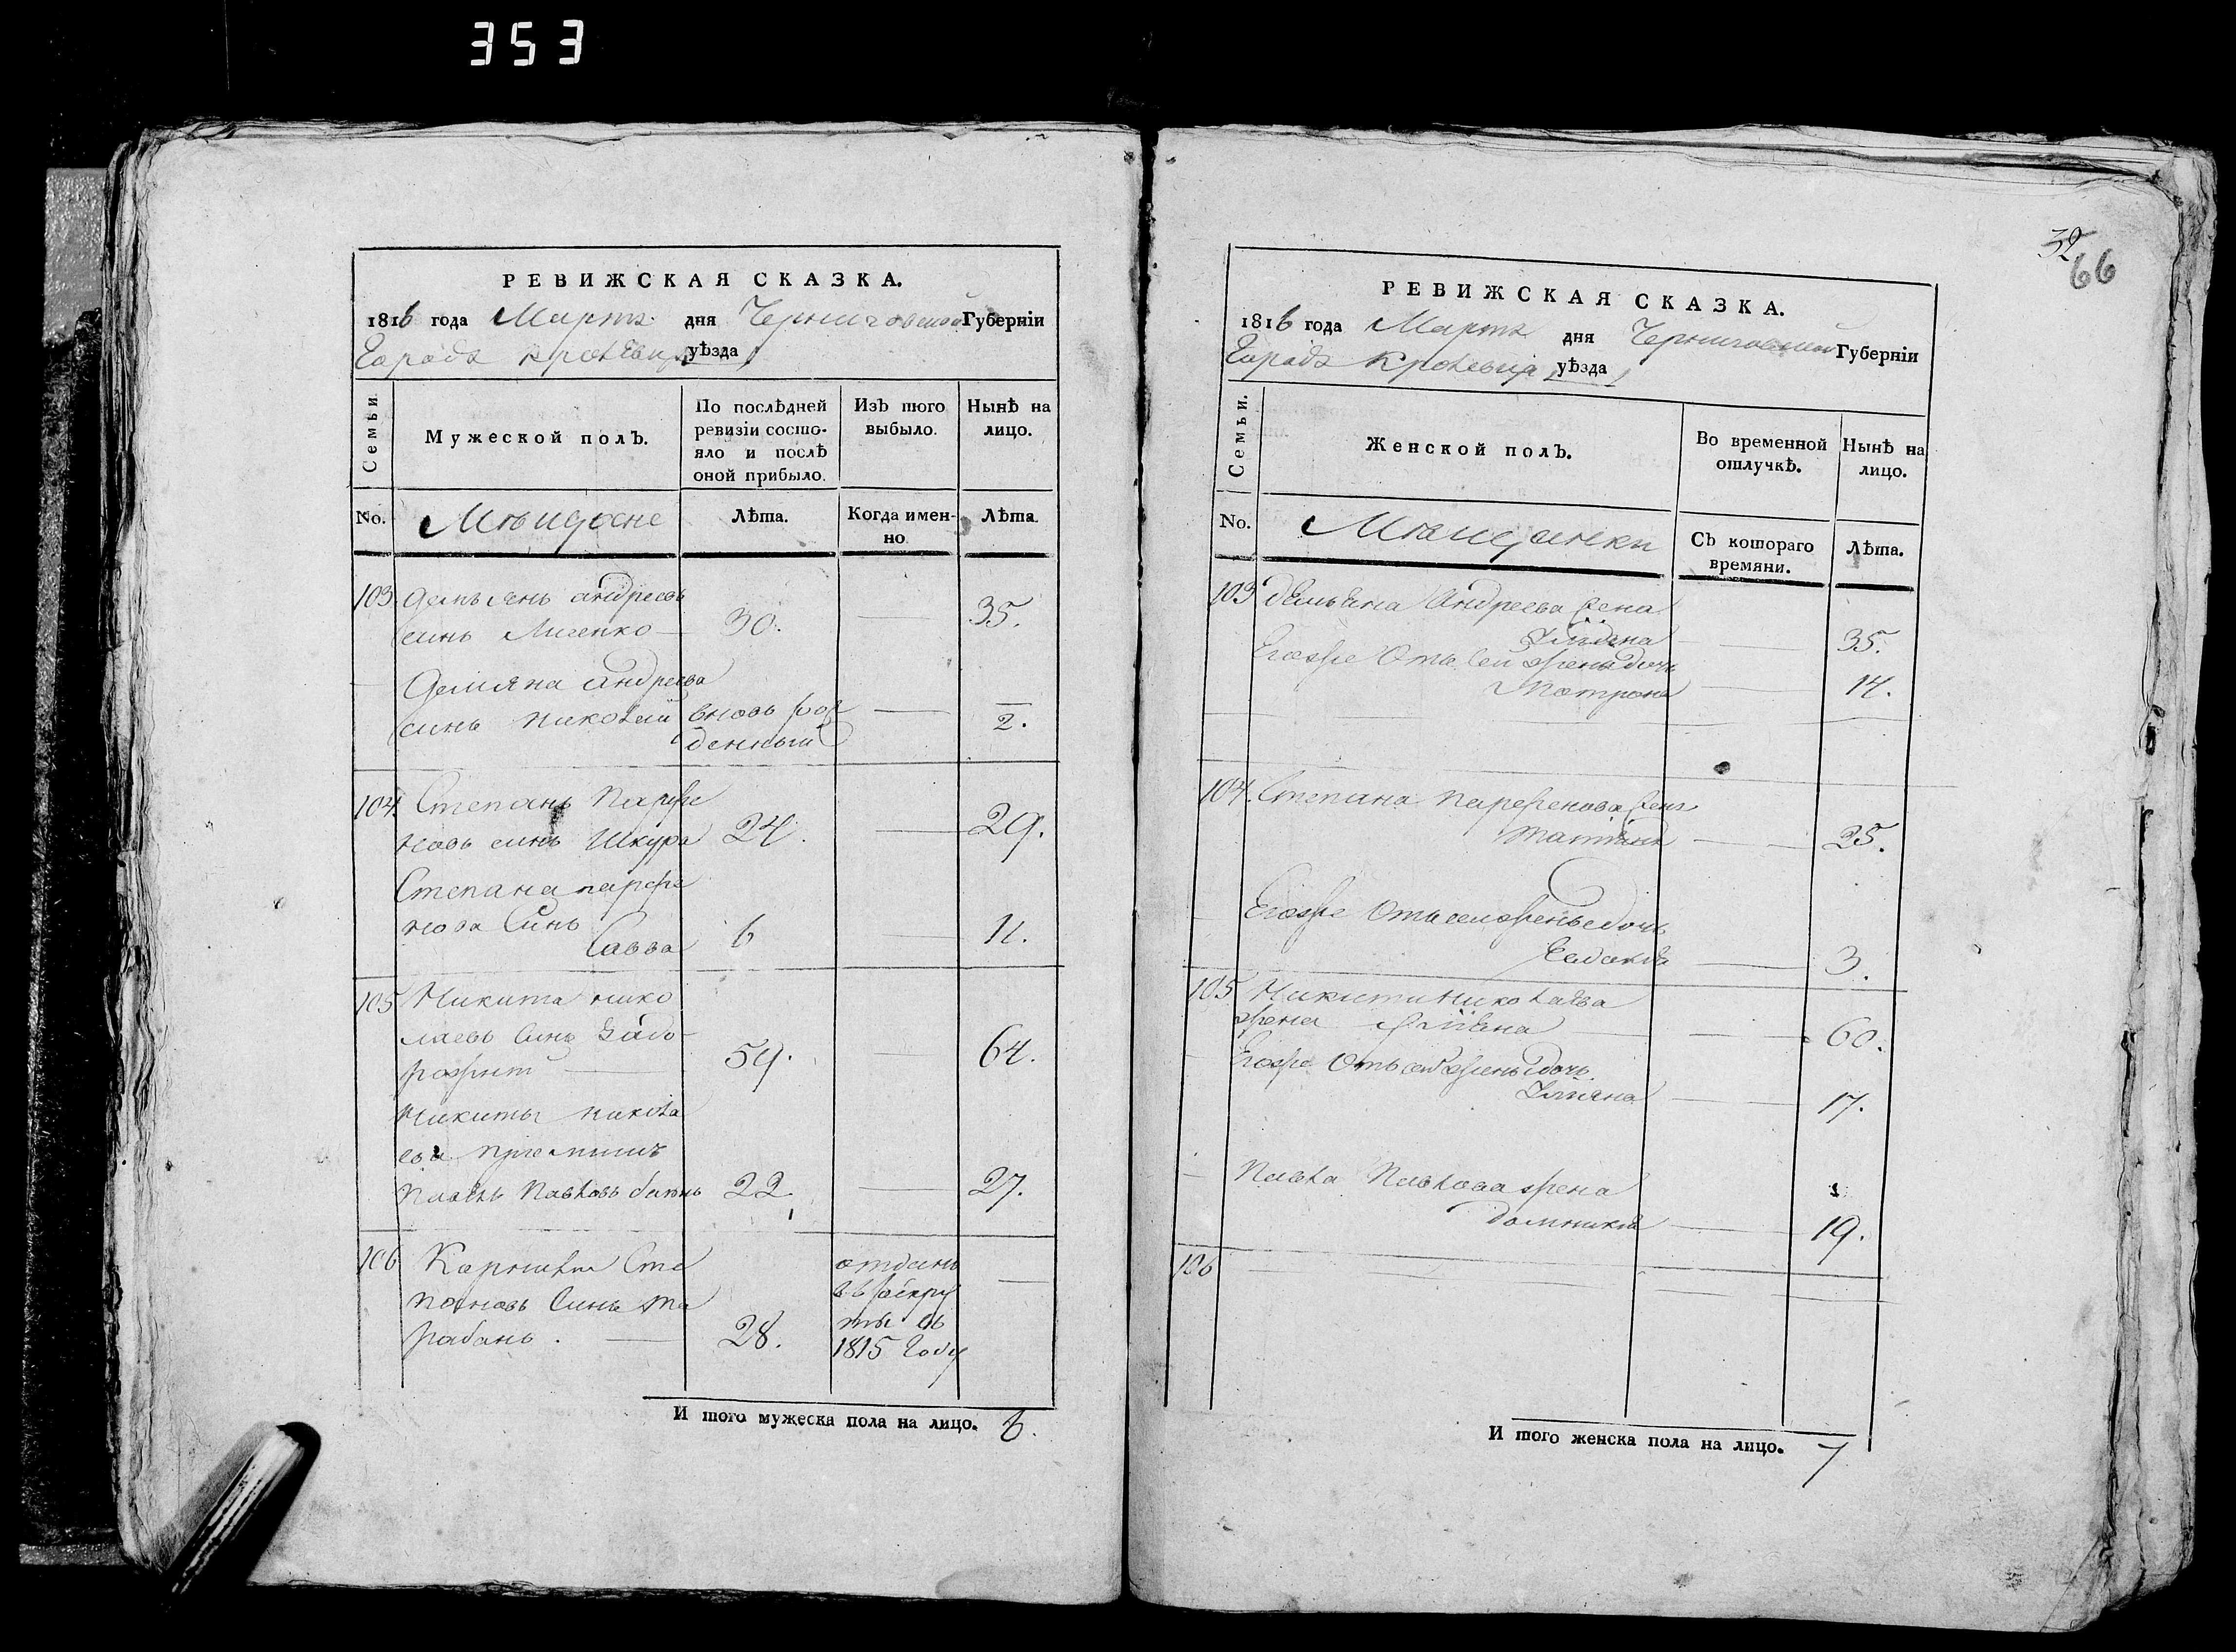 353
РЕВИЖСКАЯ СКАЗКА.
1816 года Марта дня Черниговской Губерніи
Города Кролевца уѣзда
Семьи
Мужеской полъ.
По послѣдней ревизіи состояло и послѣ оной прибыло.
Изъ того выбыло.
Нынѣ на лицо.
No.
Мѣщане
Лѣта.
Когда именно
Лѣта.
103 Демьянъ андреевъ
синъ 30. — 35.
Демяна андреева
синъ николай вновь рож
денный — 2.
104. Степанъ Парфе
новъ синъ Шкура 24. — 29.
Степана парфе
нова Синъ
Савва 6 — 11.
105 Никита нико
лаевъ Синъ
59. — 64.
Никиты никола
ева приемишъ
Павелъ Павловъ 22. — 27.
106 Сте
пановъ Синъ та
рабанъ. — 28.
отданъ
въ рекру
ты въ
1815 Году —
И того мужеска пола на лицо. 6.
32
66
РЕВИЖСКАЯ СКАЗКА.
1816 года Марта дня Черниговской Губерніи
Города Кролевца уѣзда
Семьи.
Женской полъ.
Во временной отлучкѣ.
Нынѣ на лицо.
No.
Мѣщанки
Съ котораго времяни.
Лѣта.
103 Демьяна Андреева жена
— 35.
Егожъ Отъ сей жены дочь
Мотрона — 14.
104. Степана парфенова жена
Татіана — 25.
Егожъ Отъ сей жены дочь
Евдокія — 3.
105 Никити Николаева
жена — 60.
Егожъ Отъ сей жены дочь
Уліяна — 17.
Павла Павлова жена
Домникія — 19.
106
И того женска пола на лицо. 7